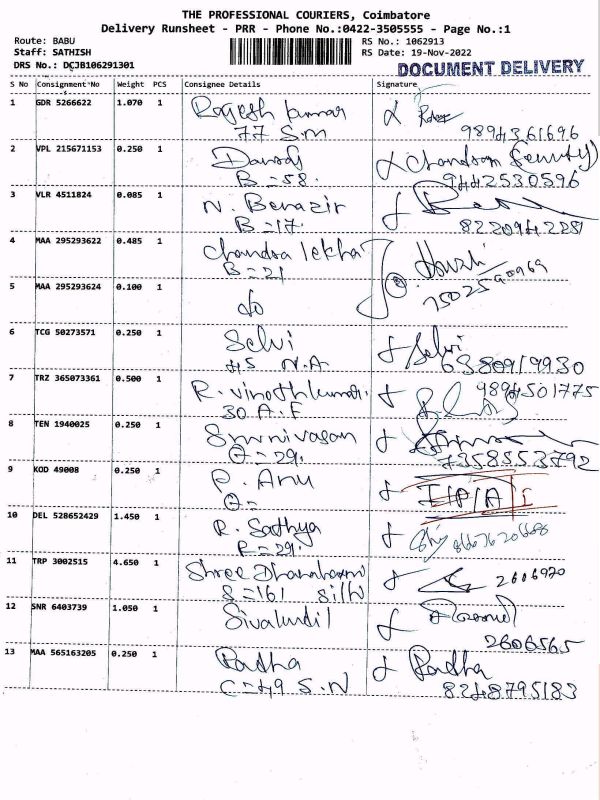 THE PROFESSIONAL COURIERS, Coimbatore
Delivery Runsheet - PRR - Phone No.:0422-3505555 - Page No.:1
Route: BABU RS No.: 1062913
Staff: SATHISH RS Date: 19-Nov-2022
DRS No.: DCJB106291301 DOCUMENT DELIVERY
S No Consignment No Weight PCS Consignee Details Signature
1 GDR 5266622 1.070 1 Rajesh kumar
77 S.M 9894361696
2 VPL 215671153 0.250 1 Chandran (Security)
B=58. 9442530596
3 VLR 4511824 0.085 1 N. Benazir
B=17. 8220942281
4 MAA 295293622 0.485 1 Chandra lekha
B=21 7502590969
5 MAA 295293624 0.100 1 do
6 TCG 50273571 0.250 1 Selvi Selvi
45 N.A 6380919930
7 TRZ 365073361 0.500 1 R. Vinothkumar. 9894501775
30 A.F
8 TEN 1940025 0.250 1 Srinivasan
29. 7358553792
9 KOD 49008 0.250 1 P. Anu
10 DEL 528652429 1.450 1 R. Sathya
29.
11 TRP 3002515 4.650 1 Shree Dhanalaxmi 2606970
S=161
12 SNR 6403739 1.050 1
2606565
13 MAA 565163205 0.250 1 Radha Radha
C=49 S.N 8248795183